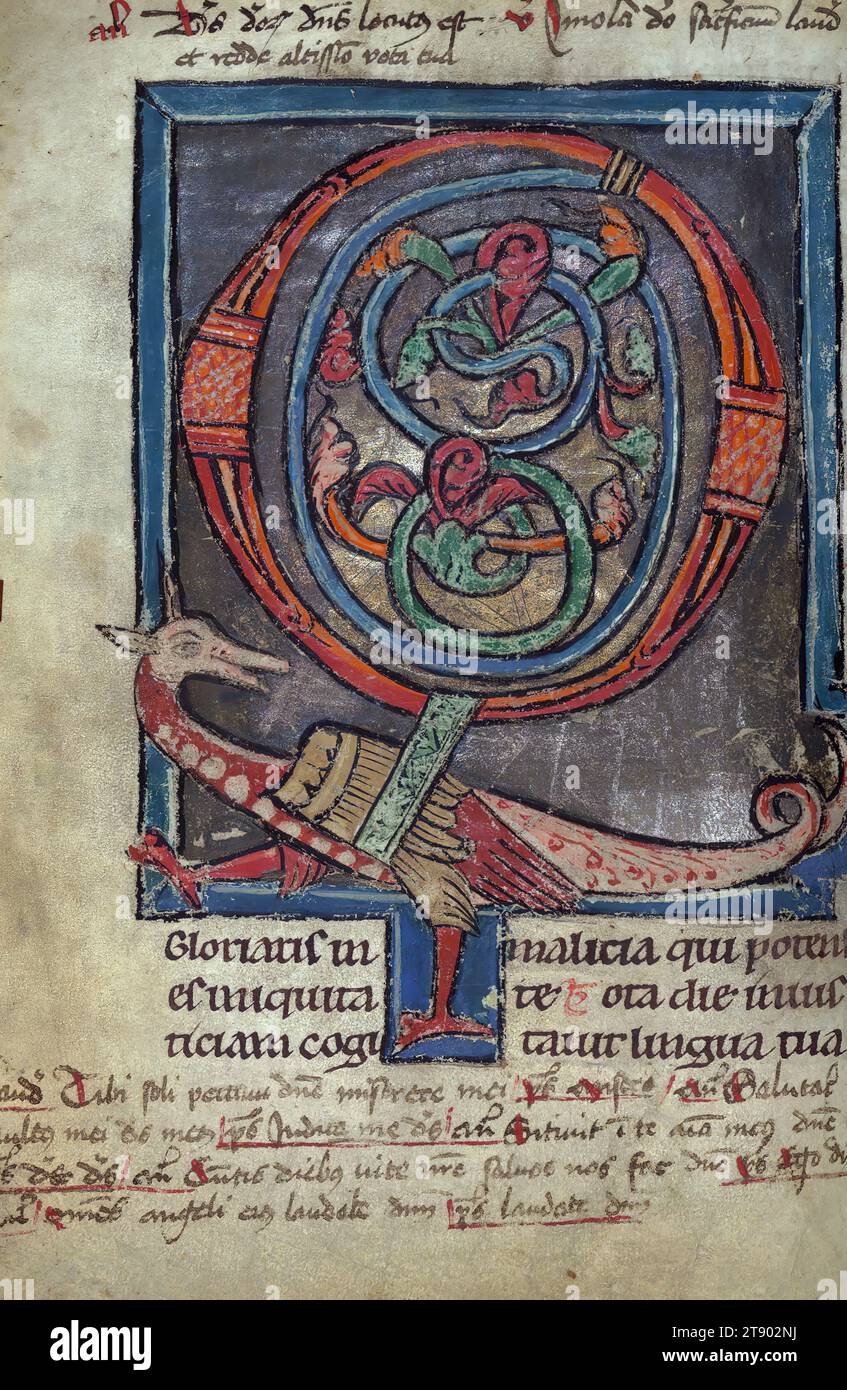 an̄ Ds̄ deoꝝ dn̄s locutus est ℣ Imola dō sacrificium laud
et redde altissimo vota tua
Q
Gloriaris in malicia qui poten
es iniquitate Tota die inius
ticiam cogitauit lingua tua
laud Tibi soli peccaui dn̄e miserere mei ps an̄ Salutar
uultus mei ds̄ meus ps Iudica me ds̄ an̄ Sitiuit ī te aīa mea dn̄e
ps ds̄ ds̄ an̄ Cunctis diebus uite nr̄e saluos nos fac dn̄e ps
an̄ omnes angeli eius laudate dnm ps laudate dnm
alamy
Image ID: 2T902NJ
www.alamy.com